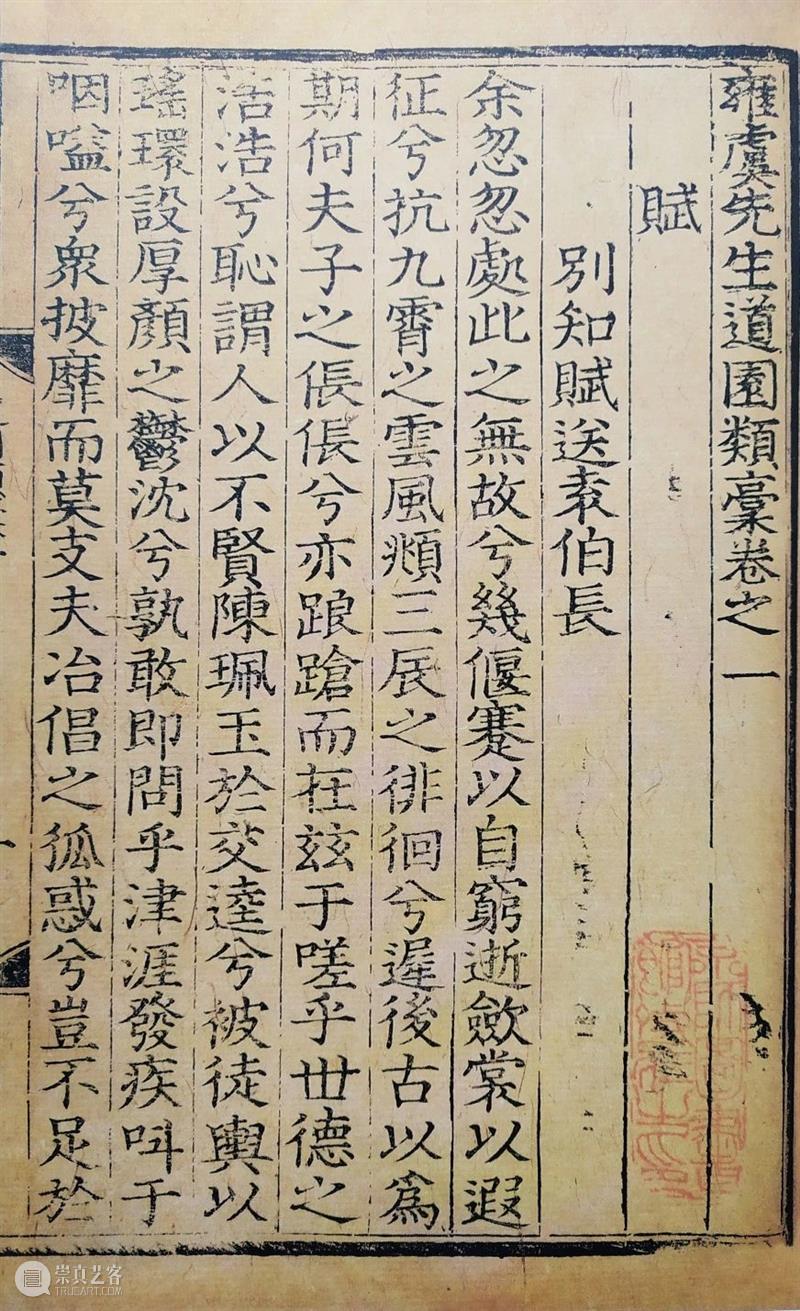 雍虞先生道園類稾卷之一
賦
別知賦送袁伯長
余忽忽處此之無故兮幾偃蹇以自窮逝斂裳以遐
征兮抗九霄之雲風頫三辰之徘徊兮遲後古以爲
期何夫子之倀倀兮亦踉蹌而在茲于嗟乎世德之
浩浩兮恥謂人以不賢陳珮玉於交逵兮被徒輿以
瑤環設厚顏之鬱沈兮孰敢即問乎津涯發疾呌于
咽嗌兮衆披靡而莫支夫冶倡之狐惑兮豈不足於
崇真艺客